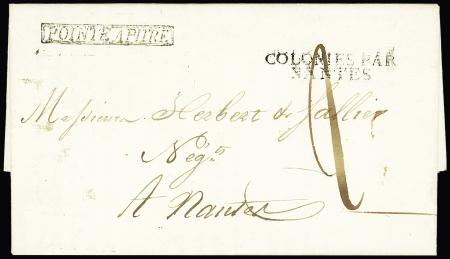 POINTE A PITRE
COLONIES PAR
NANTES
Messieurs Herbert de
Negts
A Nantes